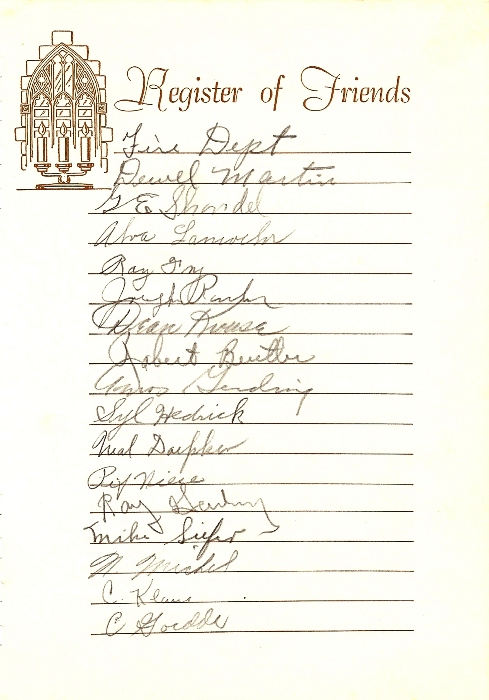 Register of Friends
Fire Dept
Dewel Martin
G E Shondel
Alva
Ray Fry
Joseph
Dean Krouse
Robert Beutler
Amos Gerding
Syl Hedrick
Neal
Niese
Ray Gerding
Mike Siefer
M. Michel
C. Klaus
C Goedde